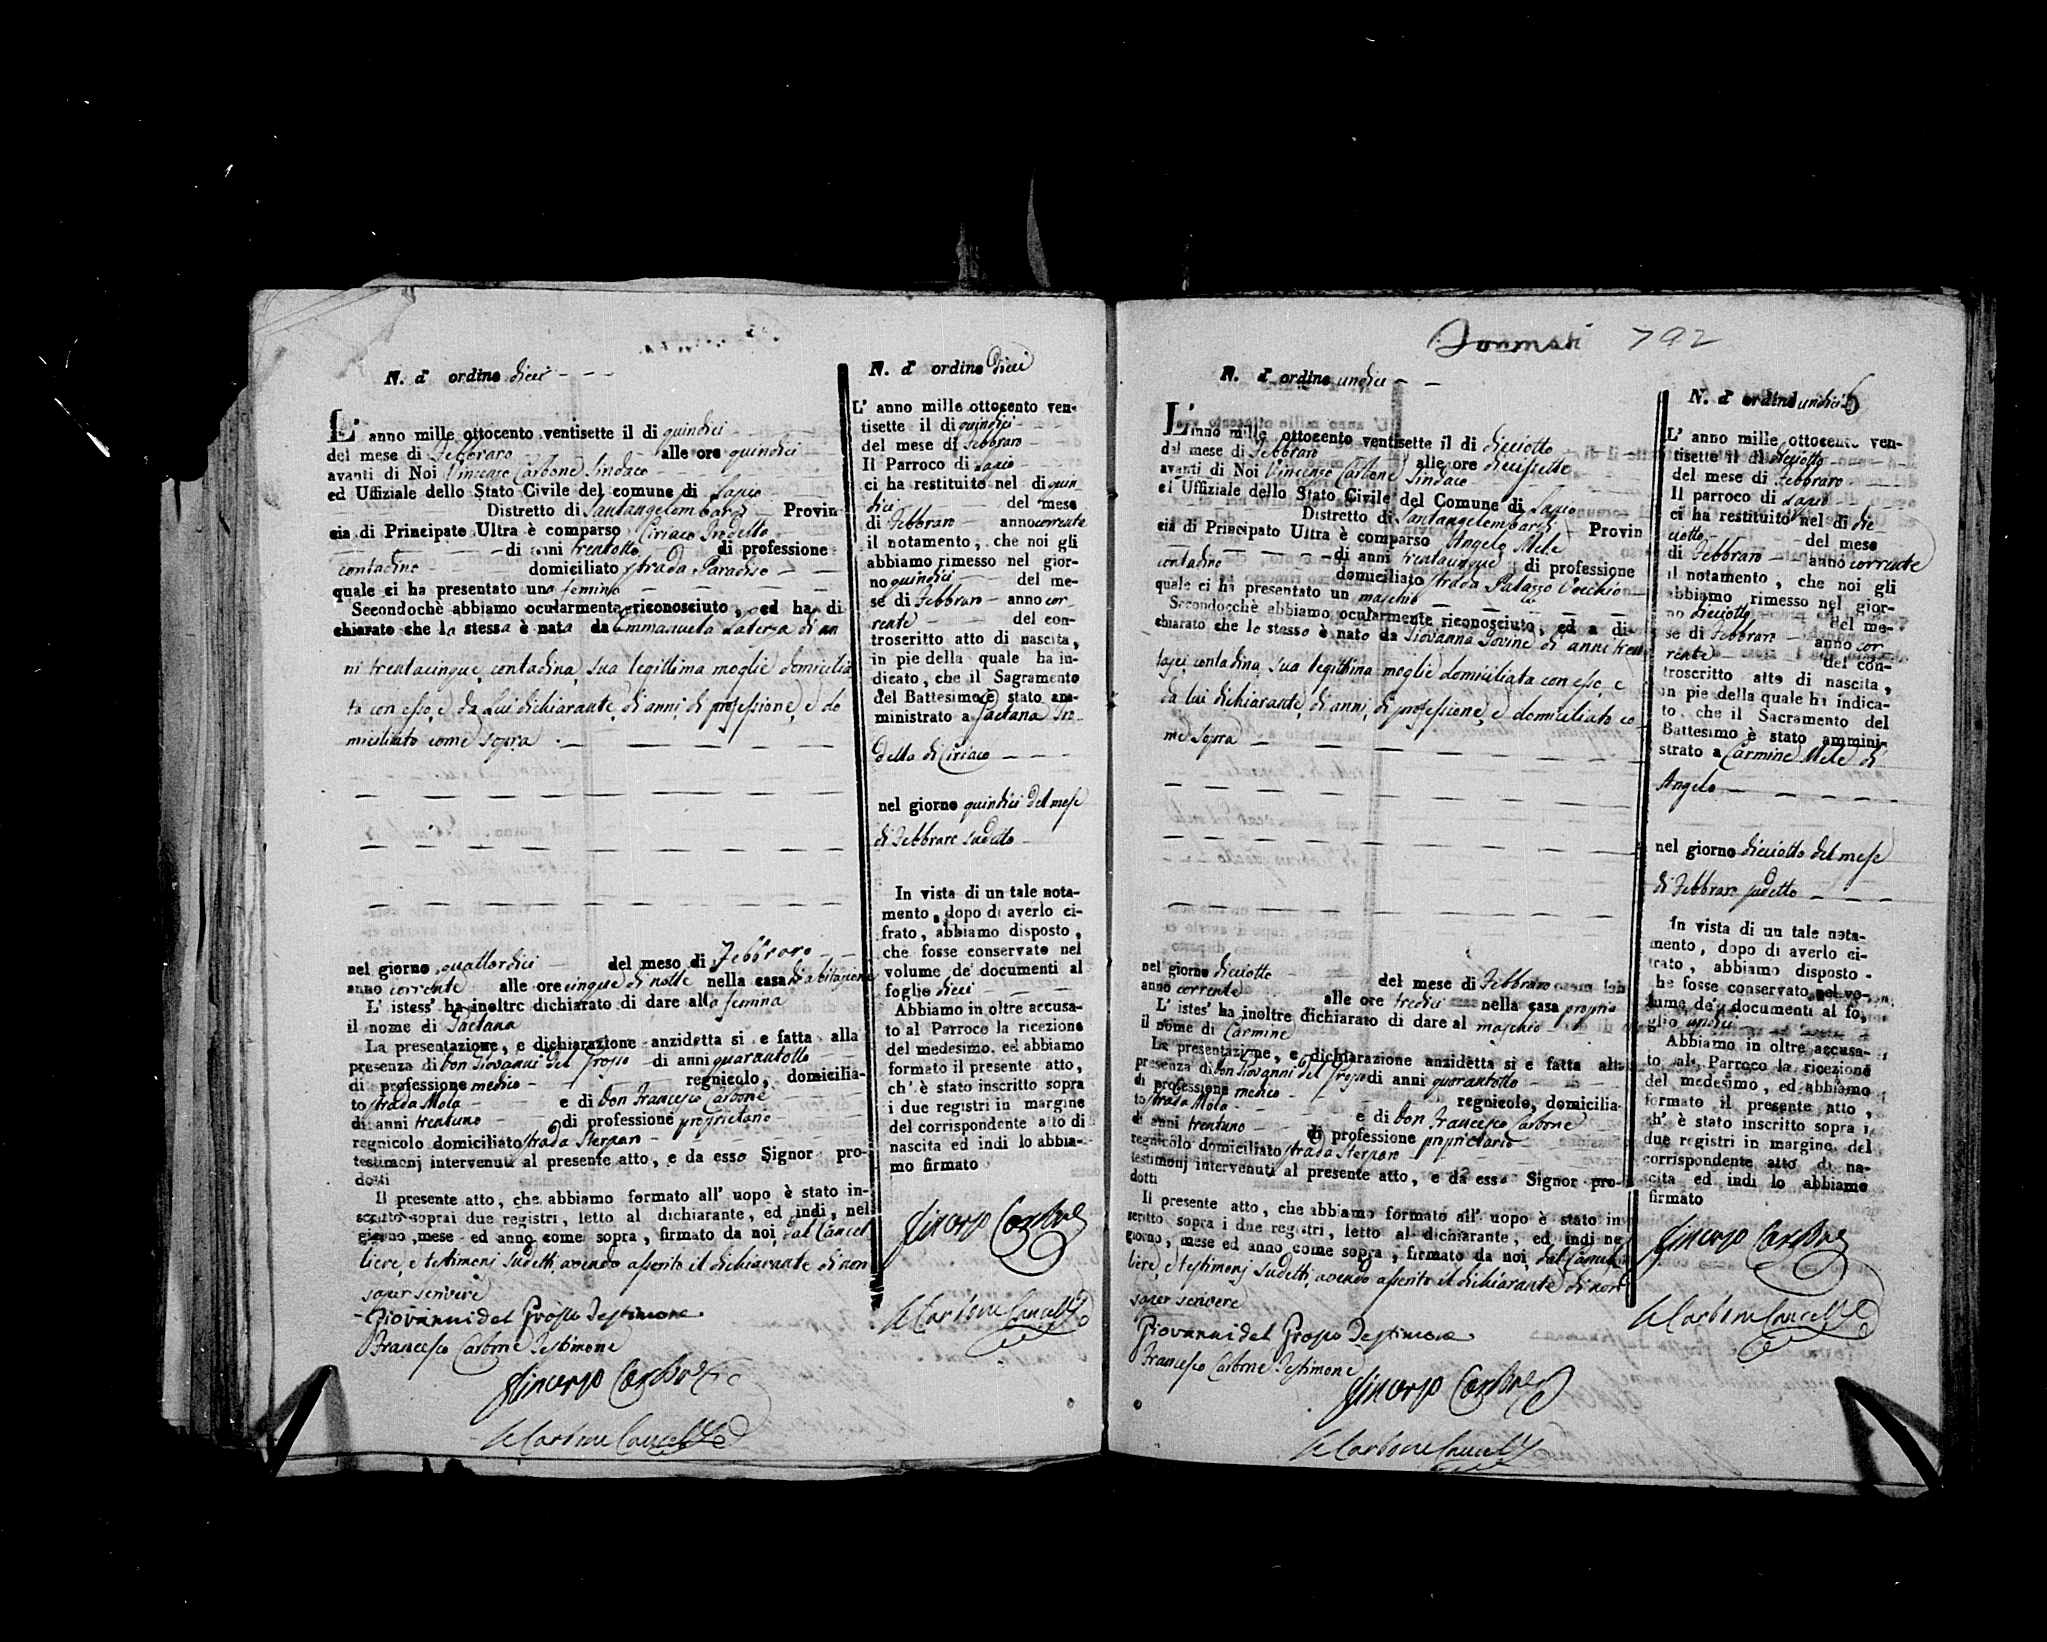 N. d' ordine dieci
L' anno mille ottocento ventisette il di quindici
del mese di Febbraro alle ore quindici
avanti di Noi Vincenzo Carbone Sindaco
ed Uffiziale dello Stato Civile del comune di Lapio
Distretto di Santangelombardi Provin
cia di Principato Ultra è comparso Ciriaco Indello
di anni trentotto di professione
contadino domiciliato strada Paradiso
quale ci ha presentato una femina
Secondochè abbiamo ocularmente riconosciuto, ed ha di
chiarato che la stessa è nata da Emmanuela Laterza di an
ni trentacinque, contadina, sua legittima moglie domicilia
ta con esso, e da Lui dichiarante, di anni, di professione, e do
miciliato come sopra
nel giorno quattordici del mese di Febbraro
anno corrente alle ore cinque di notte nella casa di abitazione
L' istess' ha inoltre dichiarato di dare alla femina
il nome di Gaetana
La presentazione, e dichiarazione anzidetta si e fatta alla
presenza di Don Giovanni del Grosso di anni quarantotto
di professione medico regnicolo, domicilia-
to strada Mola e di Don Francesco Carbone
di anni trentuno di professione proprietario
regnicolo domiciliato strada Sterparo
testimonj intervenuti al presente atto, e da esso Signor pro-
dotti
Il presente atto, che abbiamo formato all' uopo è stato in-
scritto sopra i due registri, letto al dichiarante, ed indi, nel
giorno, mese ed anno come sopra, firmato da noi, dal Cancel
liere, e testimonj sudetti, avendo asserito il dichiarante di non
saper scrivere
Giovanni del Grosso Testimone
Francesco Carbone Testimone
Vincenzo Carbone
Carbone Cancell.e
N. d' ordine Dieci
L' anno mille ottocento ven-
tisette il di quindici
del mese di Febbraro
Il Parroco di Lapio
ci ha restituito nel di quin
dici del mese
di Febbraro anno corrente
il notamento, che noi gli
abbiamo rimesso nel gior-
no quindici del me-
se di Febbraro anno cor-
rente del con-
troscritto atto di nascita,
in pie della quale ha in-
dicato, che il Sagramento
del Battesimo è stato am-
ministrato a Gaetana In-
dello di Ciriaco
nel giorno quindici del mese
di Febbraro sudetto
In vista di un tale nota-
mento, dopo di averlo ci-
frato, abbiamo disposto,
che fosse conservato nel
volume de' documenti al
foglio dieci
Abbiamo in oltre accusa-
to al Parroco la ricezione
del medesimo, ed abbiamo
formato il presente atto,
ch' è stato inscritto sopra
i due registri in margine
del corrispondente atto di
nascita ed indi lo abbia-
mo firmato
Vincenzo Carbone
Carbone Cancell.e
792
N. d' ordine undici
L' anno mille ottocento ventisette il di dieciotto
del mese di Febbraro alle ore diecissette
avanti di Noi Vincenzo Carbone Sindaco
ed Uffiziale dello Stato Civile del Comune di Lapio
Distretto di Santangelombardi Provin
cia di Principato Ultra è comparso Angelo Mele
di anni trentacinque di professione
contadino domiciliato strada Palazzo Vecchio
quale ci ha presentato un maschio
Secondocchè abbiamo ocularmente riconosciuto, ed a di-
chiarato che lo stesso è nato da Giovanna Iovine di anni tren
tasei contadina, sua legittima moglie domiciliata con esso, e
da lui dichiarante, di anni, di professione, e domiciliato co
me sopra
nel giorno dieciotto del mese di Febbraro
anno corrente alle ore tredici nella casa propria
L' istes' ha inoltre dichiarato di dare al maschio
il nome di Carmine
La presentazione, e dichiarazione anzidetta si e fatta alla
presenza di Don Giovanni del Grosso di anni quarantotto
di professione medico regnicolo, domicilia-
to strada Mola e di Don Francesco Carbone
di anni trentuno di professione proprietario
regnicolo domiciliato strada Sterparo
testimonj intervenuti al presente atto, e da esso Signor pro-
dotti
Il presente atto, che abbiamo formato all' uopo è stato in
scritto sopra i due registri, letto al dichiarante, ed indi ne
giorno, mese ed anno come sopra, firmato da noi, dal Cancel
liere, e testimonj sudetti, avendo asserito il dichiarante di non
saper scrivere
Giovanni del Grosso Testimone
Francesco Carbone Testimone
Vincenzo Carbone
Carbone Cancell.e
N. d' ordine undici 6
L' anno mille ottocento ven-
tisette il di dieciotto
del mese di Febbraro
Il parroco di Lapio
ci ha restituito nel di die
ciotto del mese
di Febbraro anno corrente
il notamento, che noi gli
abbiamo rimesso nel gior-
no dieciotto del me-
se di Febbraro anno cor
rente del con-
troscritto atto di nascita,
in pie della quale ha indica-
to, che il Sacramento del
Battesimo è stato ammini-
strato a Carmine Mele di
Angelo
nel giorno dieciotto del mese
di Febbraro sudetto
In vista di un tale nota-
mento, dopo di averlo ci-
frato, abbiamo disposto
he fosse conservato nel vo-
lume de' documenti al fo-
glio undici
Abbiamo in oltre accusa-
to al Parroco la ricezione
del medesimo, ed abbiamo
formato il presente atto,
ch' è stato inscritto sopra i
due registri in margine del
corrispondente atto di na-
scita ed indi lo abbiamo
firmato
Vincenzo Carbone
Carbone Cancell.e